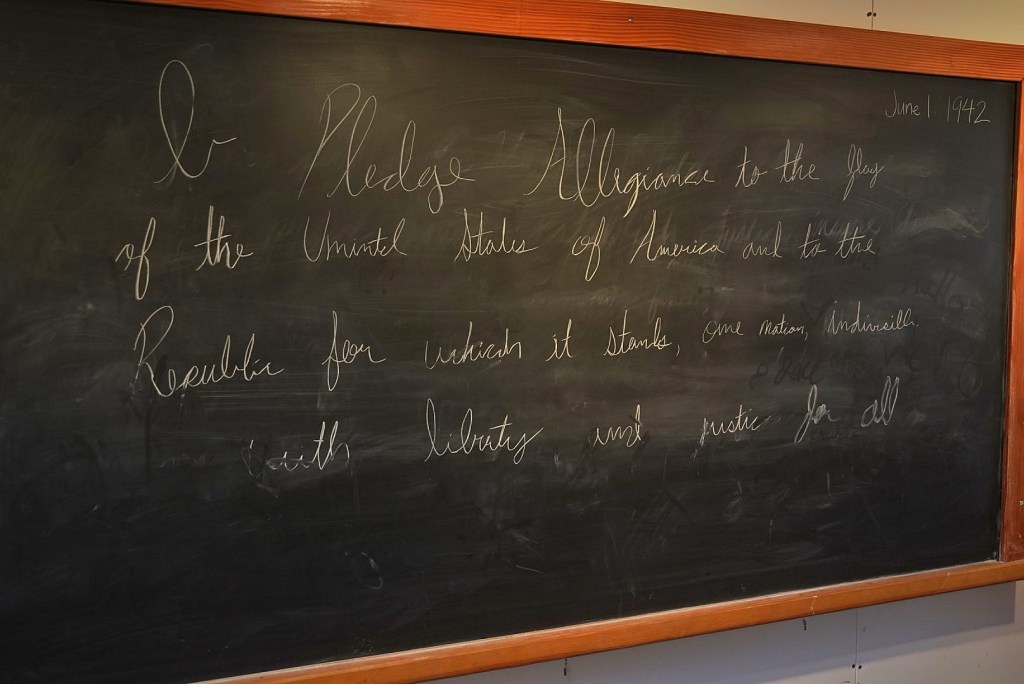 June 1 1942
I Pledge Allegiance to the flag
of the United States of America and to the
Republic for which it stands, one nation, indivisible.
with liberty and justice for all